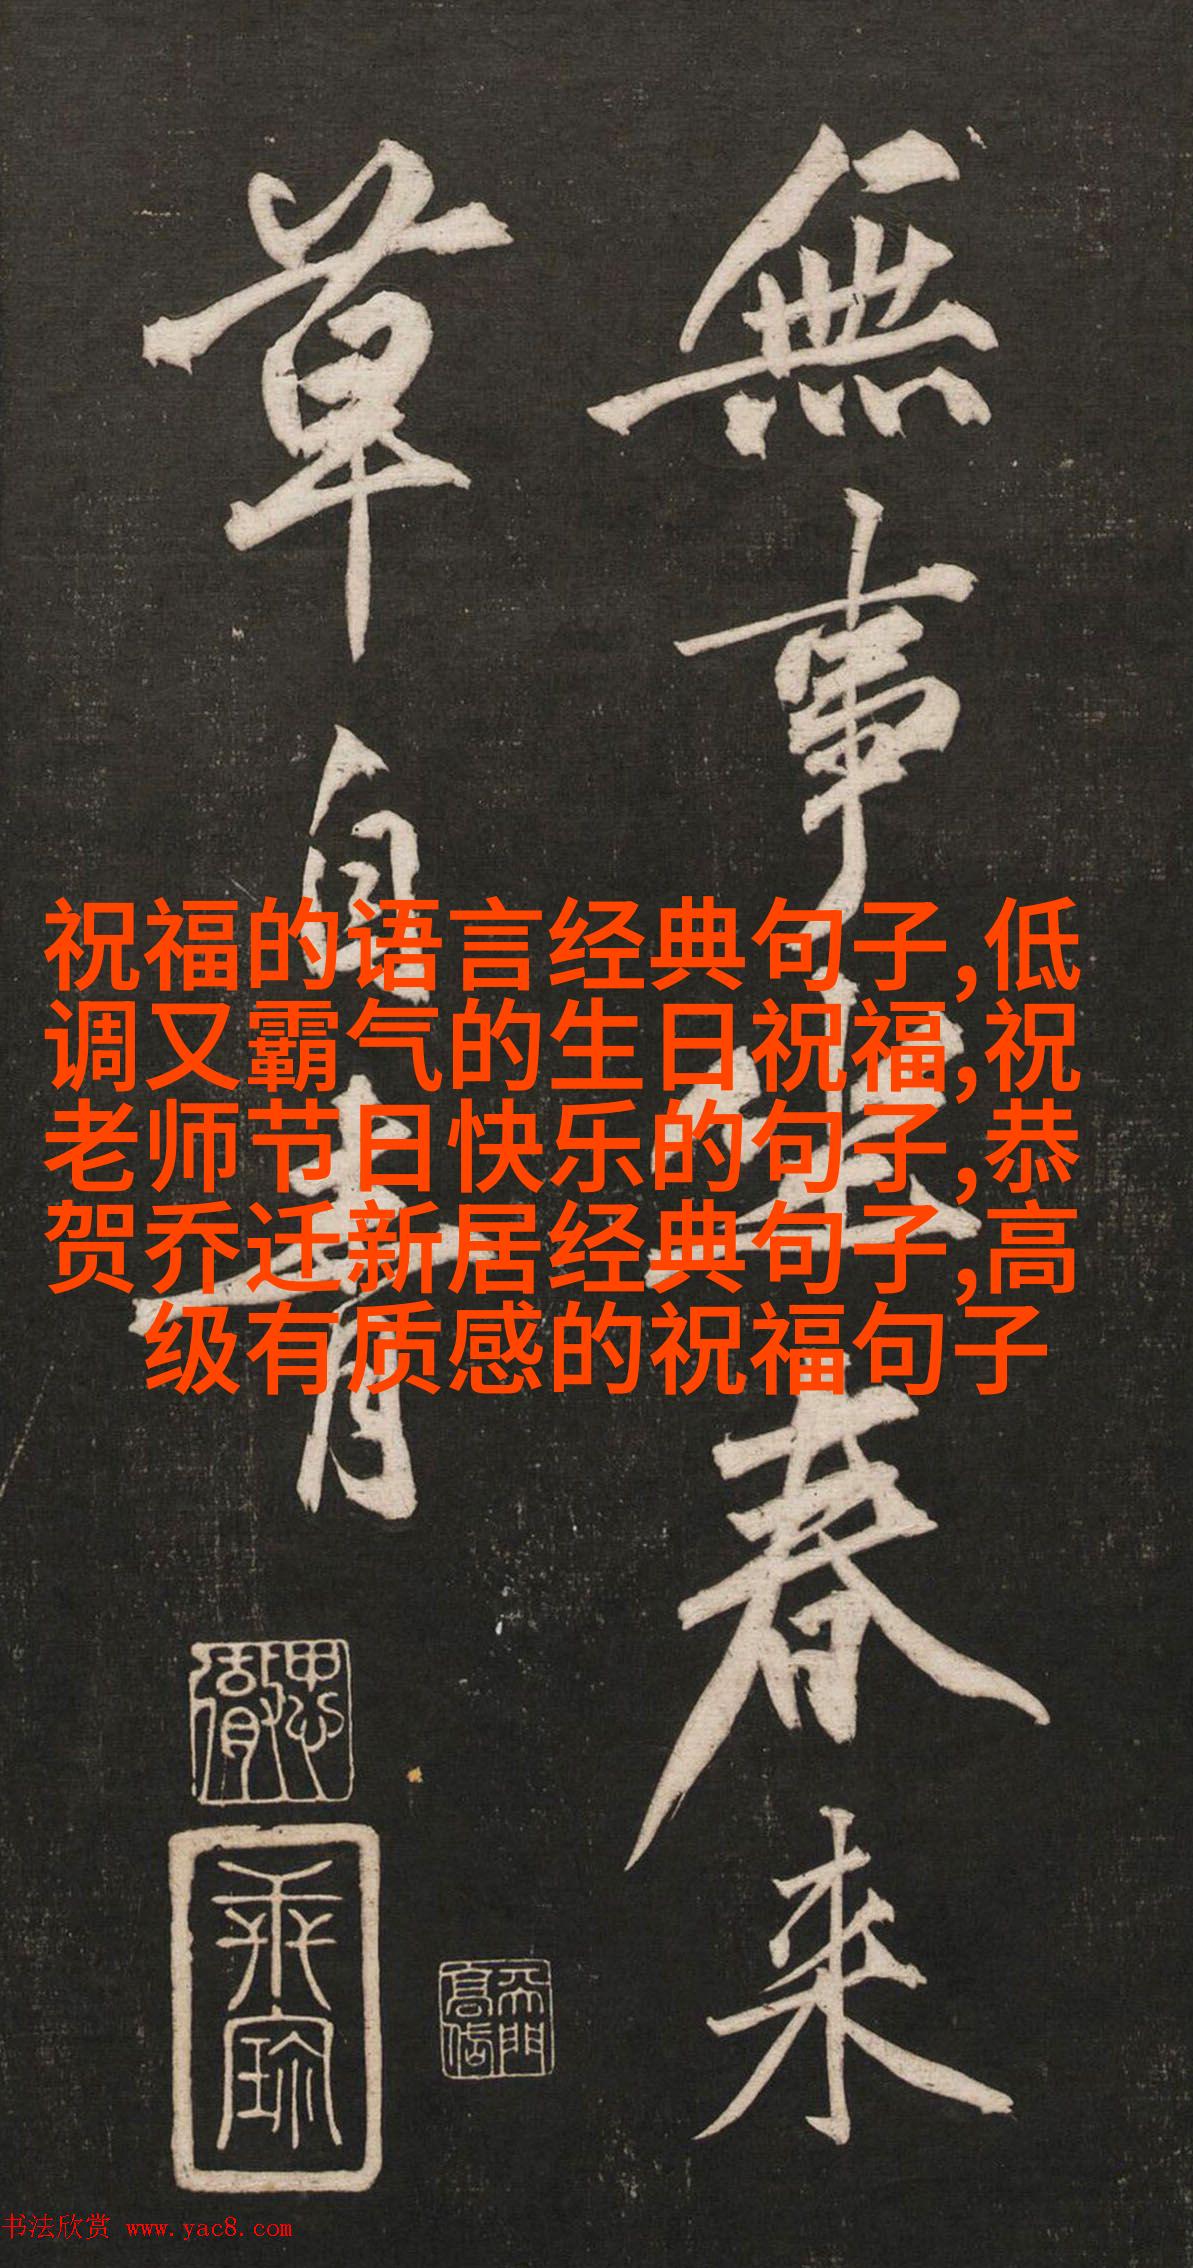 無事坐春来
草自青
祝福的语言经典句子,低
调又霸气的生日祝福,祝
老师节日快乐的句子,恭
贺乔迁新居经典句子,高
级有质感的祝福句子
书法欣赏 www.yac8.com